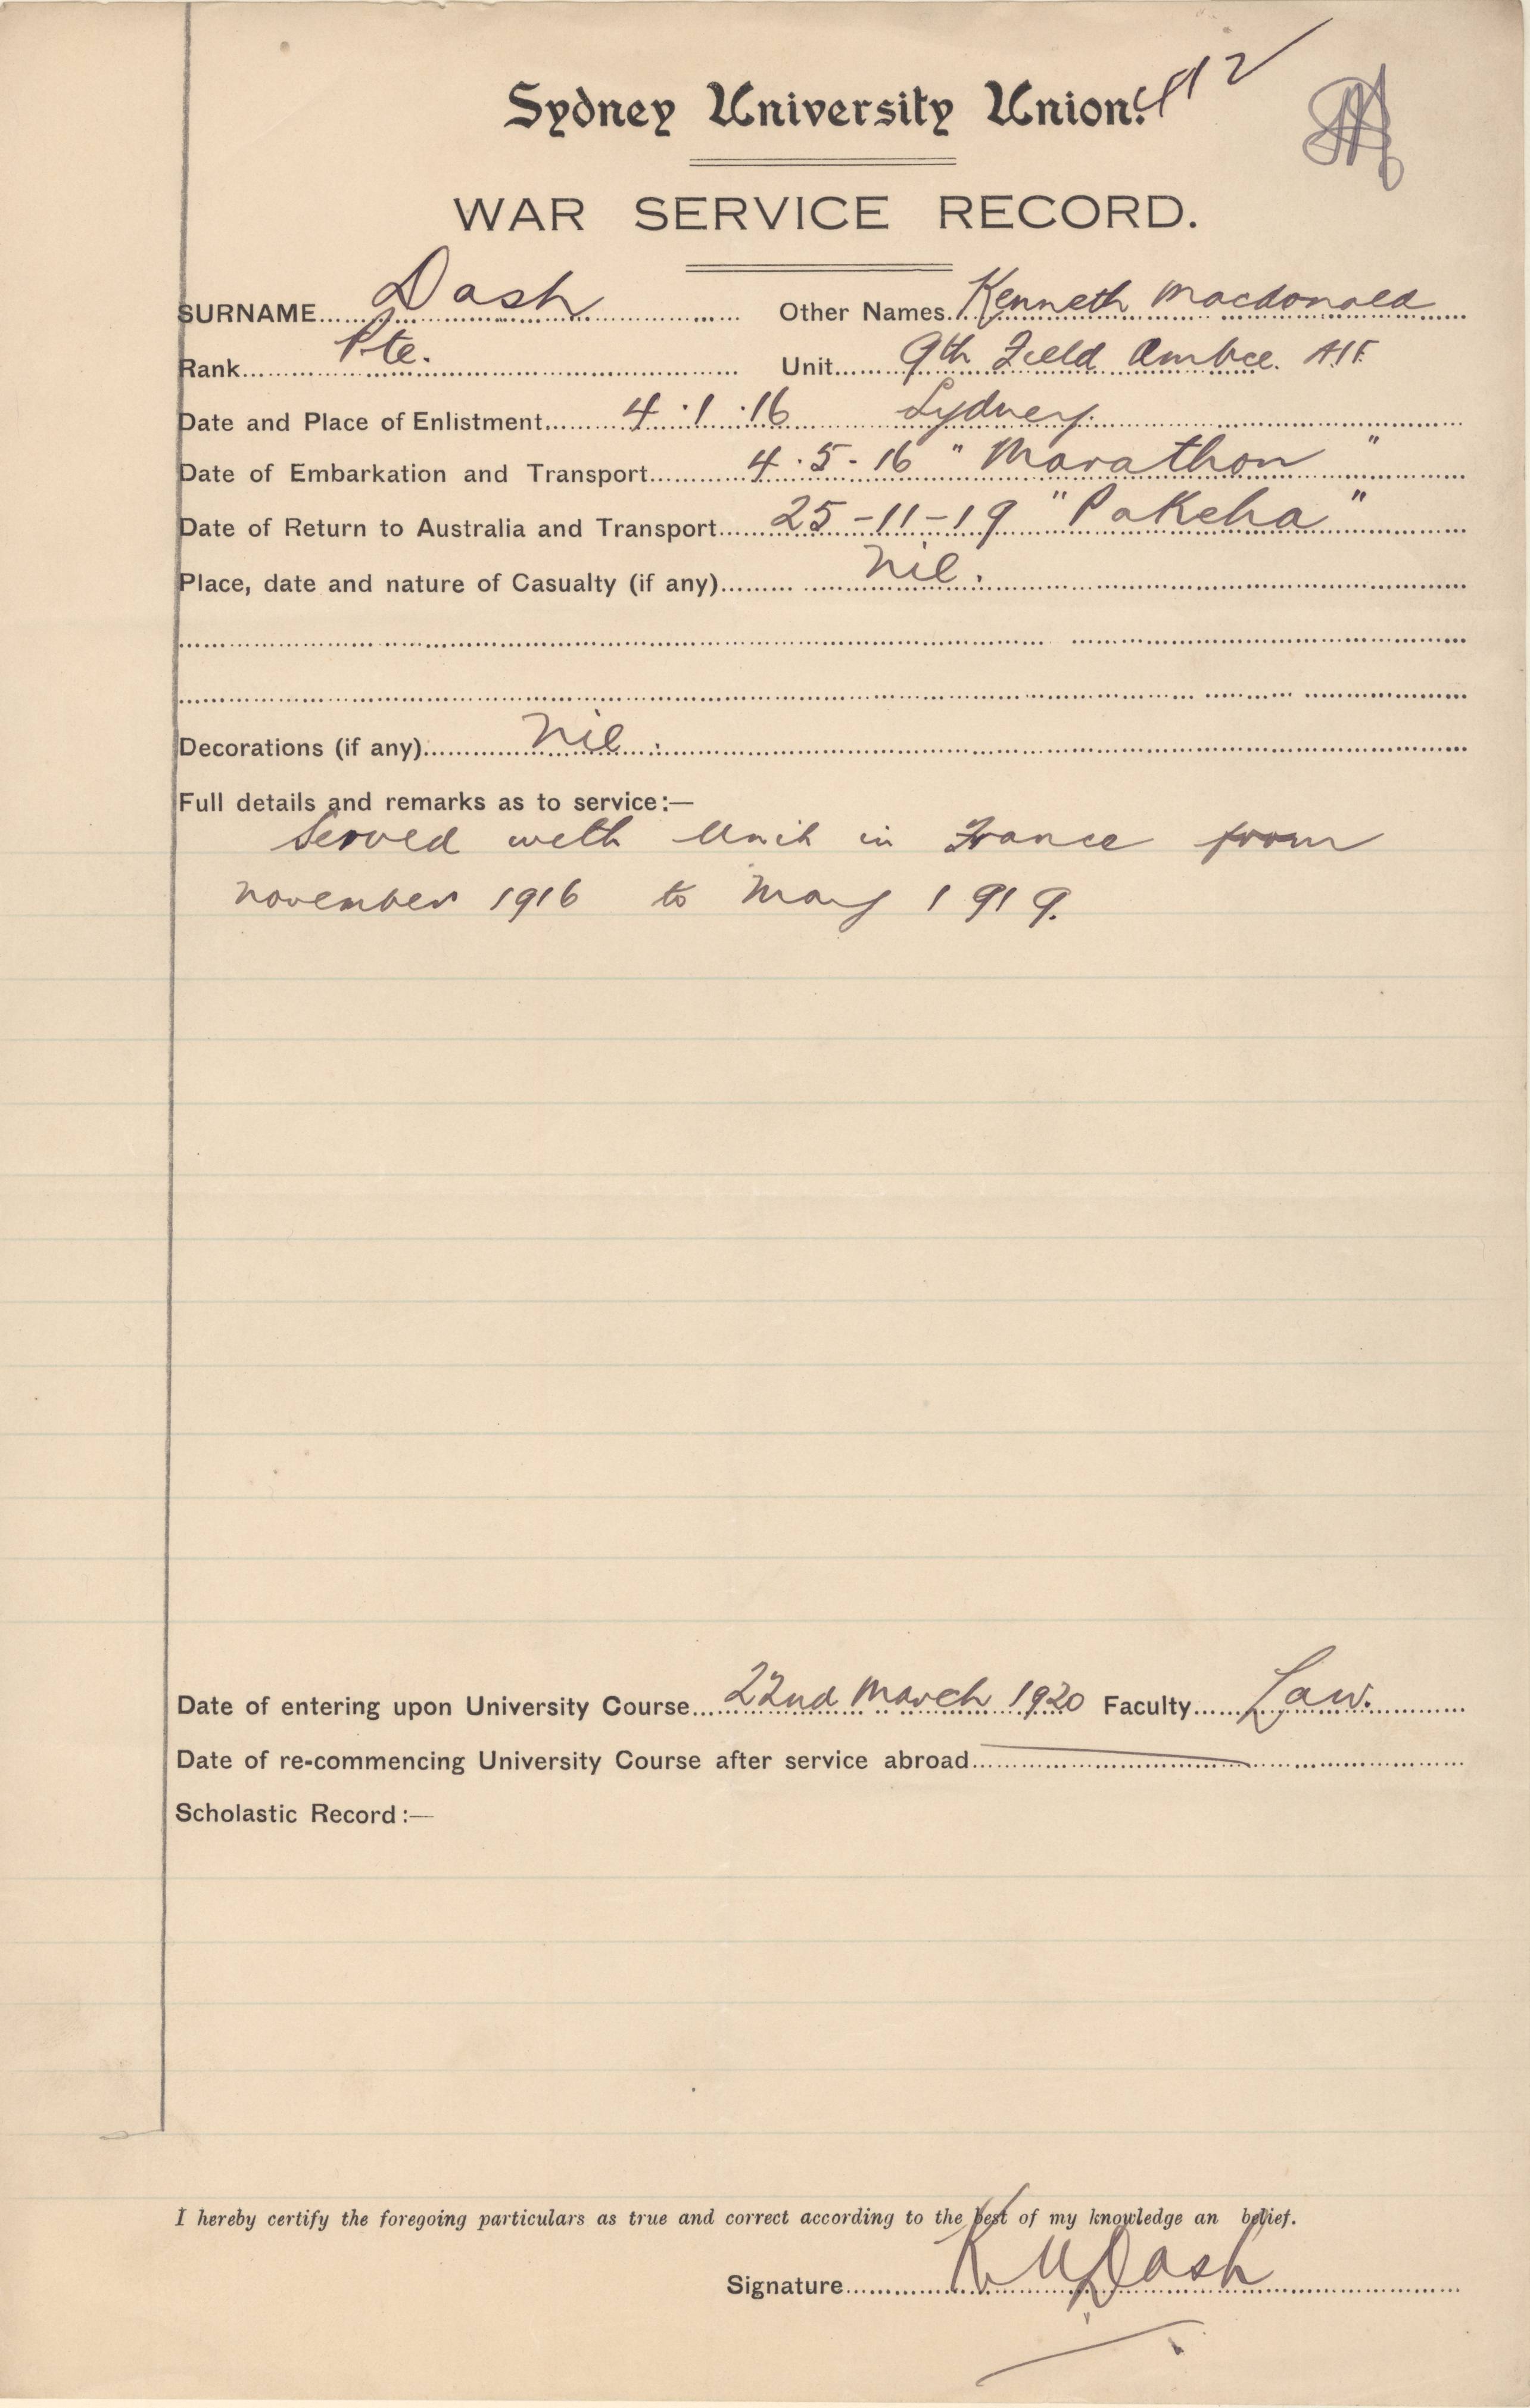 Sydney University Union.
WAR SERVICE RECORD.
SURNAME Dash Other Names Kenneth Macdonald
Rank Pte. Unit 9th Field Ambce. AIF.
Date and Place of Enlistment 4.1.16 Sydney.
Date of Embarkation and Transport 4.5.16 "Marathon"
Date of Return to Australia and Transport 25-11-19 "Pakeha"
Place, date and nature of Casualty (if any) nil.
Decorations (if any) Nil.
Full details and remarks as to service:—
Served with Unit in France from
November 1916 to May 1919.
Date of entering upon University Course 22nd March 1920 Faculty Law.
Date of re-commencing University Course after service abroad —
Scholastic Record:—
I hereby certify the foregoing particulars as true and correct according to the best of my knowledge an belief.
Signature K M Dash